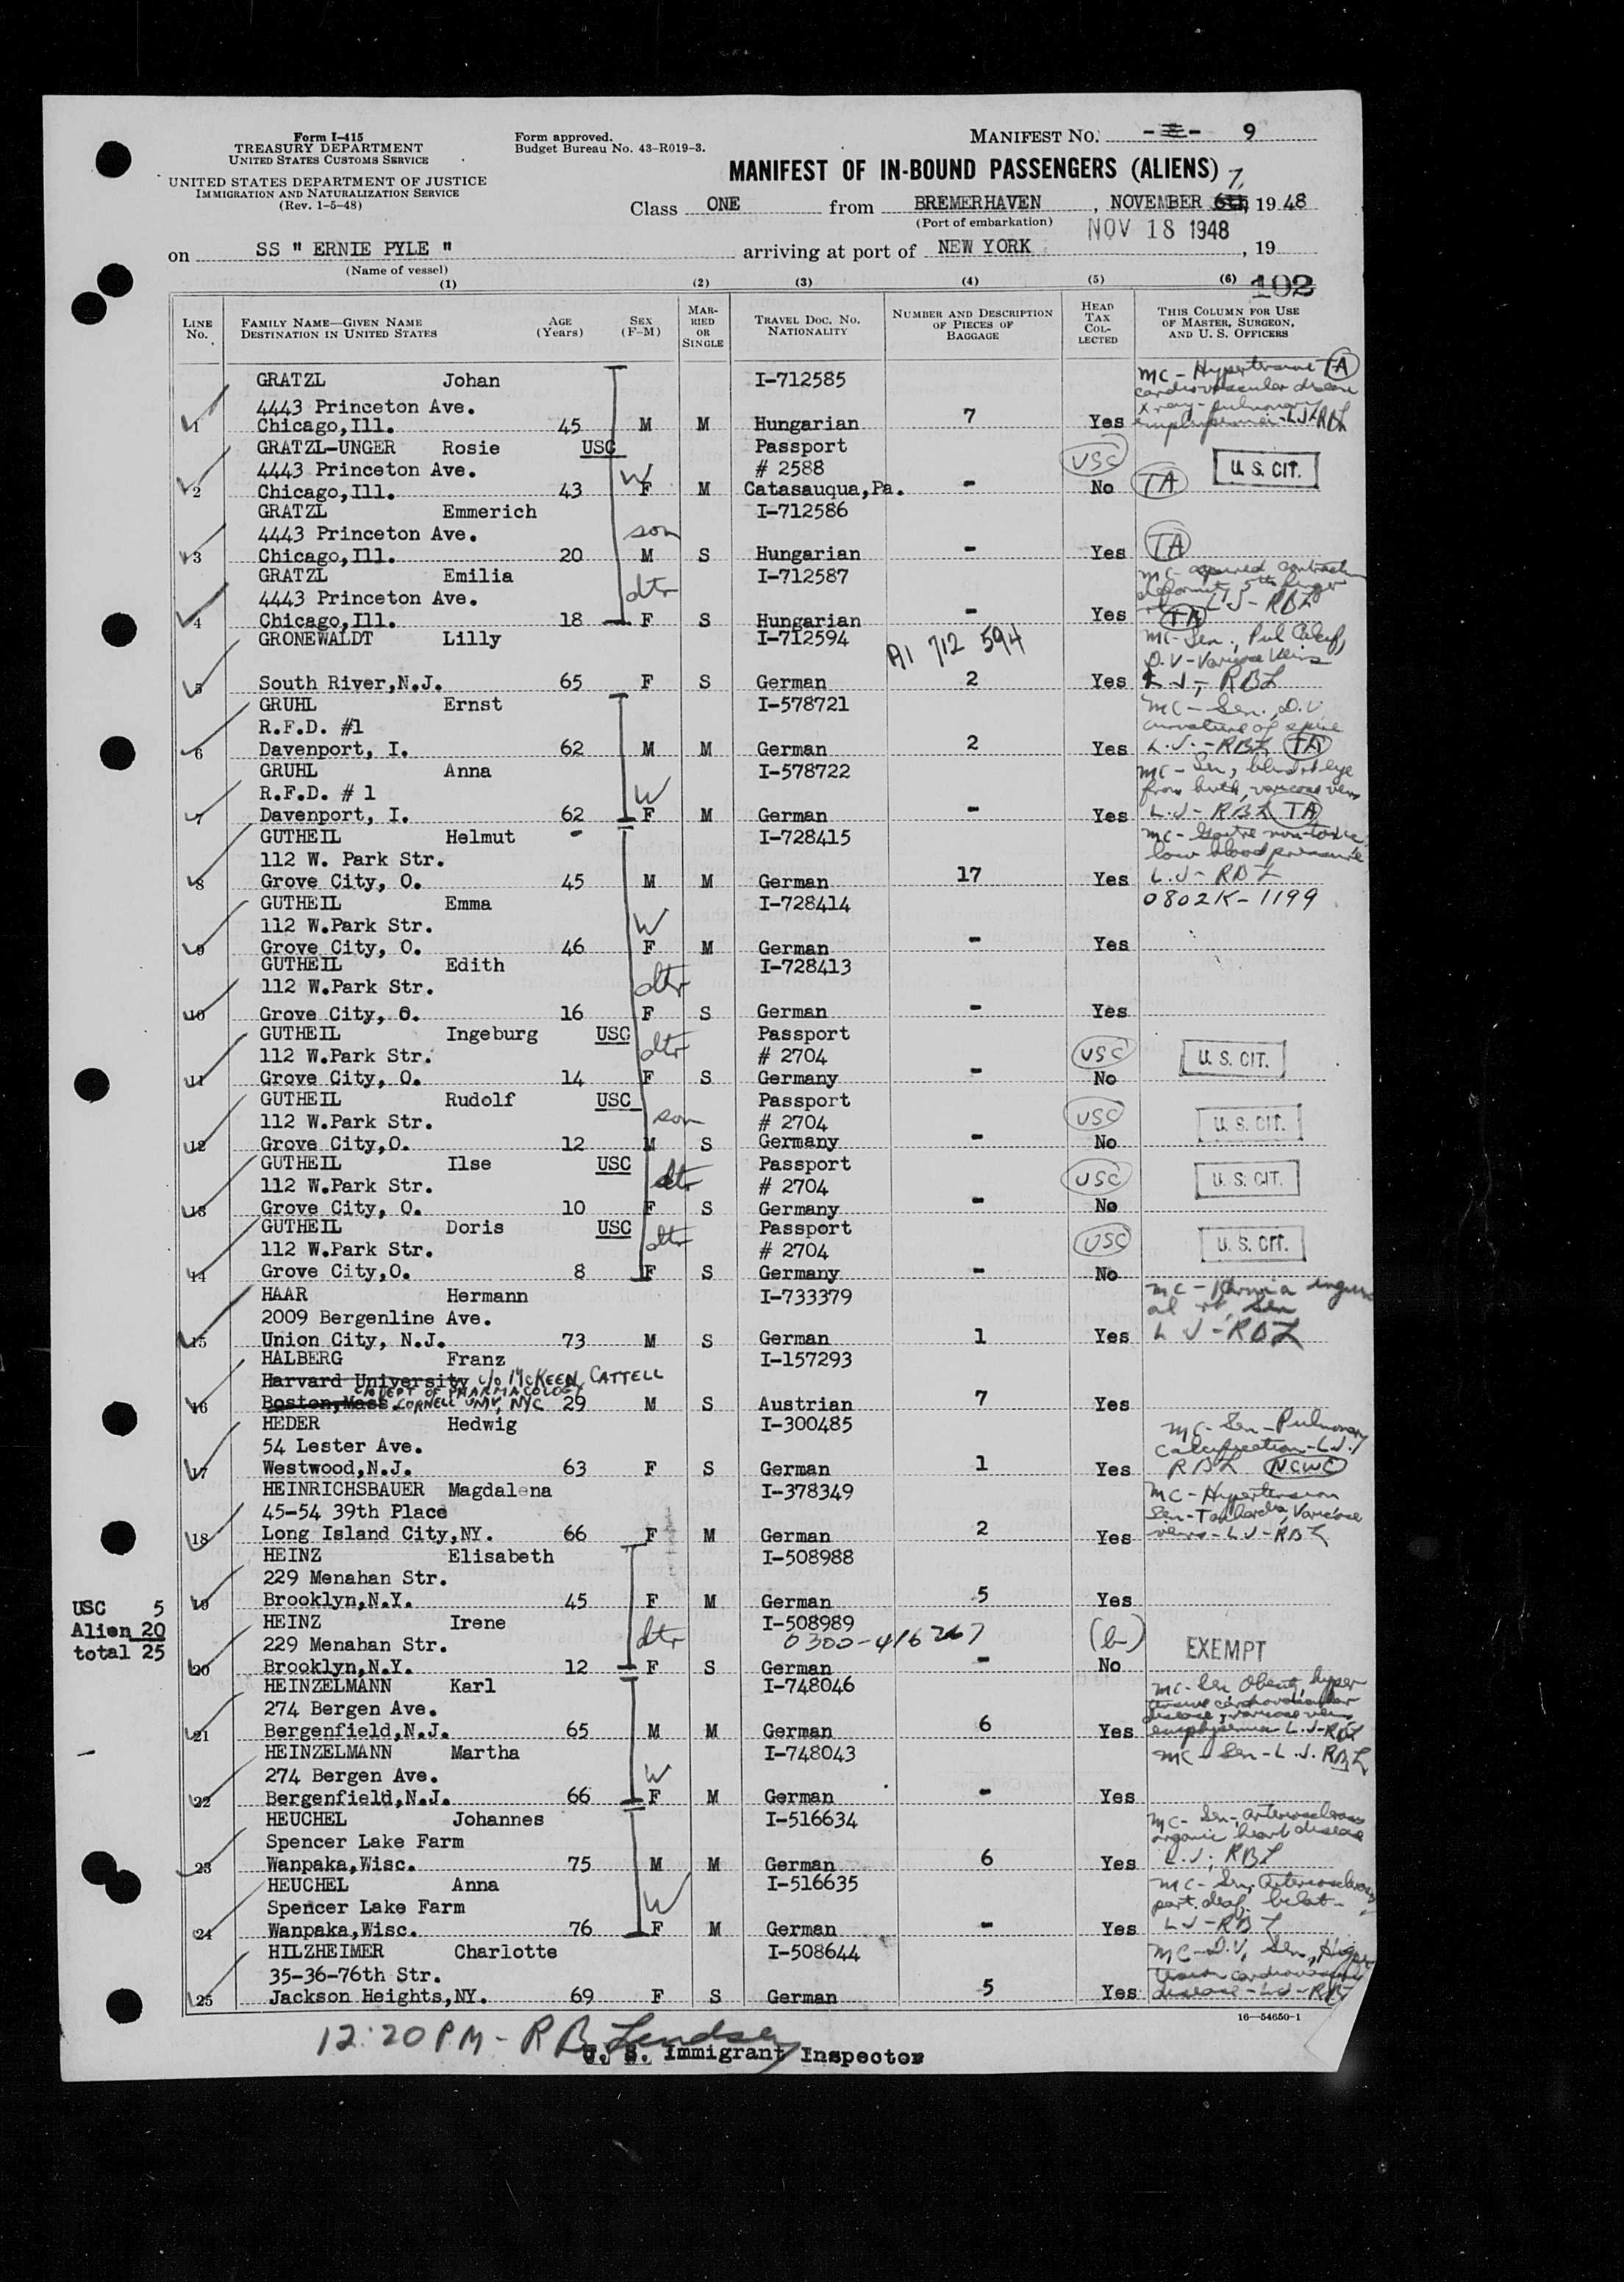 Form I-415
TREASURY DEPARTMENT
UNITED STATES CUSTOMS SERVICE
UNITED STATES DEPARTMENT OF JUSTICE
IMMIGRATION AND NATURALIZATION SERVICE
(Rev. 1-5-48)
Form approved.
Budget Bureau No. 43-R019-3.
MANIFEST NO. 9
MANIFEST OF IN-BOUND PASSENGERS (ALIENS)
Class ONE from BREMERHAVEN, NOVEMBER 6th, 7, 1948
(Port of embarkation)
NOV 18 1948
on SS " ERNIE PYLE " arriving at port of NEW YORK, 19
(Name of vessel)
(1) (2) (3) (4) (5) (6) 102
LINE No. FAMILY NAME—GIVEN NAME DESTINATION IN UNITED STATES AGE (Years) SEX (F-M) MARRIED OR SINGLE TRAVEL DOC. NO. NATIONALITY NUMBER AND DESCRIPTION OF PIECES OF BAGGAGE HEAD TAX COLLECTED THIS COLUMN FOR USE OF MASTER, SURGEON, AND U. S. OFFICERS
GRATZL Johan I-712585 MC - Hypertensive TA
4443 Princeton Ave. cardiovascular disease
1 Chicago,Ill. 45 M M Hungarian 7 Yes x ray - pulmonary emphysema - LJ-RBL
GRATZL-UNGER Rosie USC Passport
4443 Princeton Ave. W # 2588 USC U. S. CIT.
2 Chicago,Ill. 43 F M Catasauqua,Pa. - No TA
GRATZL Emmerich I-712586
4443 Princeton Ave. son
3 Chicago,Ill. 20 M S Hungarian - Yes TA
GRATZL Emilia I-712587 MC -
4443 Princeton Ave. dtr deformity 5th finger
4 Chicago,Ill. 18 F S Hungarian - Yes LJ - RBL TA
GRONEWALDT Lilly I-712594 A1 712 594 MC - Sen., Pul Calcif,
D.V - Varicose Veins
5 South River,N.J. 65 F S German 2 Yes L J - RBL
GRUHL Ernst I-578721 MC - Sen., D.V
R.F.D. #1 curvature of spine
6 Davenport, I. 62 M M German 2 Yes L.J. - RBL TA
GRUHL Anna I-578722 MC - Sen, blind rt eye
R.F.D. # 1 W from birth, varicose veins
7 Davenport, I. 62 F M German - Yes L.J - RBL TA
GUTHEIL Helmut - I-728415 MC - Goitre non-toxic
112 W. Park Str. low blood pressure
8 Grove City, O. 45 M M German 17 Yes L.J - RBL
GUTHEIL Emma I-728414 0802K-1199
112 W.Park Str. W
9 Grove City, O. 46 F M German - Yes
GUTHEIL Edith I-728413
112 W.Park Str. dtr
10 Grove City, O. 16 F S German - Yes
GUTHEIL Ingeburg USC Passport
112 W.Park Str. dtr # 2704 USC U. S. CIT.
11 Grove City, O. 14 F S Germany - No
GUTHEIL Rudolf USC Passport
112 W.Park Str. son # 2704 USC U. S. CIT.
12 Grove City,O. 12 M S Germany - No
GUTHEIL Ilse USC Passport
112 W.Park Str. dtr # 2704 USC U. S. CIT.
13 Grove City, O. 10 F S Germany - No
GUTHEIL Doris USC Passport
112 W.Park Str. dtr # 2704 USC U. S. CIT.
14 Grove City,O. 8 F S Germany - No
HAAR Hermann I-733379 MC - Hernia inguin
2009 Bergenline Ave. al rt, Sen
15 Union City, N.J. 73 M S German 1 Yes L J - RBL
HALBERG Franz I-157293
Harvard University c/o McKEEN CATTELL
c/o DEPT OF PHARMACOLOGY
16 Boston,Mass CORNELL UNIV, NYC 29 M S Austrian 7 Yes
HEDER Hedwig I-300485 MC - Sen - Pulmonary
54 Lester Ave. calcification - L.J.
17 Westwood,N.J. 63 F S German 1 Yes RBL NCWC
HEINRICHSBAUER Magdalena I-378349 MC - Hypertension
45-54 39th Place Sen - Varicose
18 Long Island City,NY. 66 F M German 2 Yes veins - L J - RBL
HEINZ Elisabeth I-508988
229 Menahan Str.
19 Brooklyn,N.Y. 45 F M German 5 Yes
HEINZ Irene I-508989
229 Menahan Str. dtr 0300-416267 (b) EXEMPT
20 Brooklyn,N.Y. 12 F S German - No
USC 5
Alien 20
total 25
HEINZELMANN Karl I-748046 MC - Sen Obese, hyper
274 Bergen Ave. tensive cardiovascular disease, varicose veins
21 Bergenfield,N.J. 65 M M German 6 Yes emphysema L.J-RBL
HEINZELMANN Martha I-748043 MC - Sen - L.J. RBL
274 Bergen Ave. W
22 Bergenfield,N.J. 66 F M German - Yes
HEUCHEL Johannes I-516634 MC - Sen - arteriosclerosis
Spencer Lake Farm organic heart disease
23 Wanpaka,Wisc. 75 M M German 6 Yes L.J; RBL
HEUCHEL Anna I-516635 MC - Sen, Arteriosclerosis
Spencer Lake Farm W part. deaf,
24 Wanpaka,Wisc. 76 F M German - Yes L J - RBL
HILZHEIMER Charlotte I-508644 MC - D.V, Sen, Hyper
35-36-76th Str. tension cardiovascular
25 Jackson Heights,NY. 69 F S German 5 Yes disease - LJ - RBL
16—54650-1
12:20 PM - R B Lindsey
U. S. Immigrant Inspector